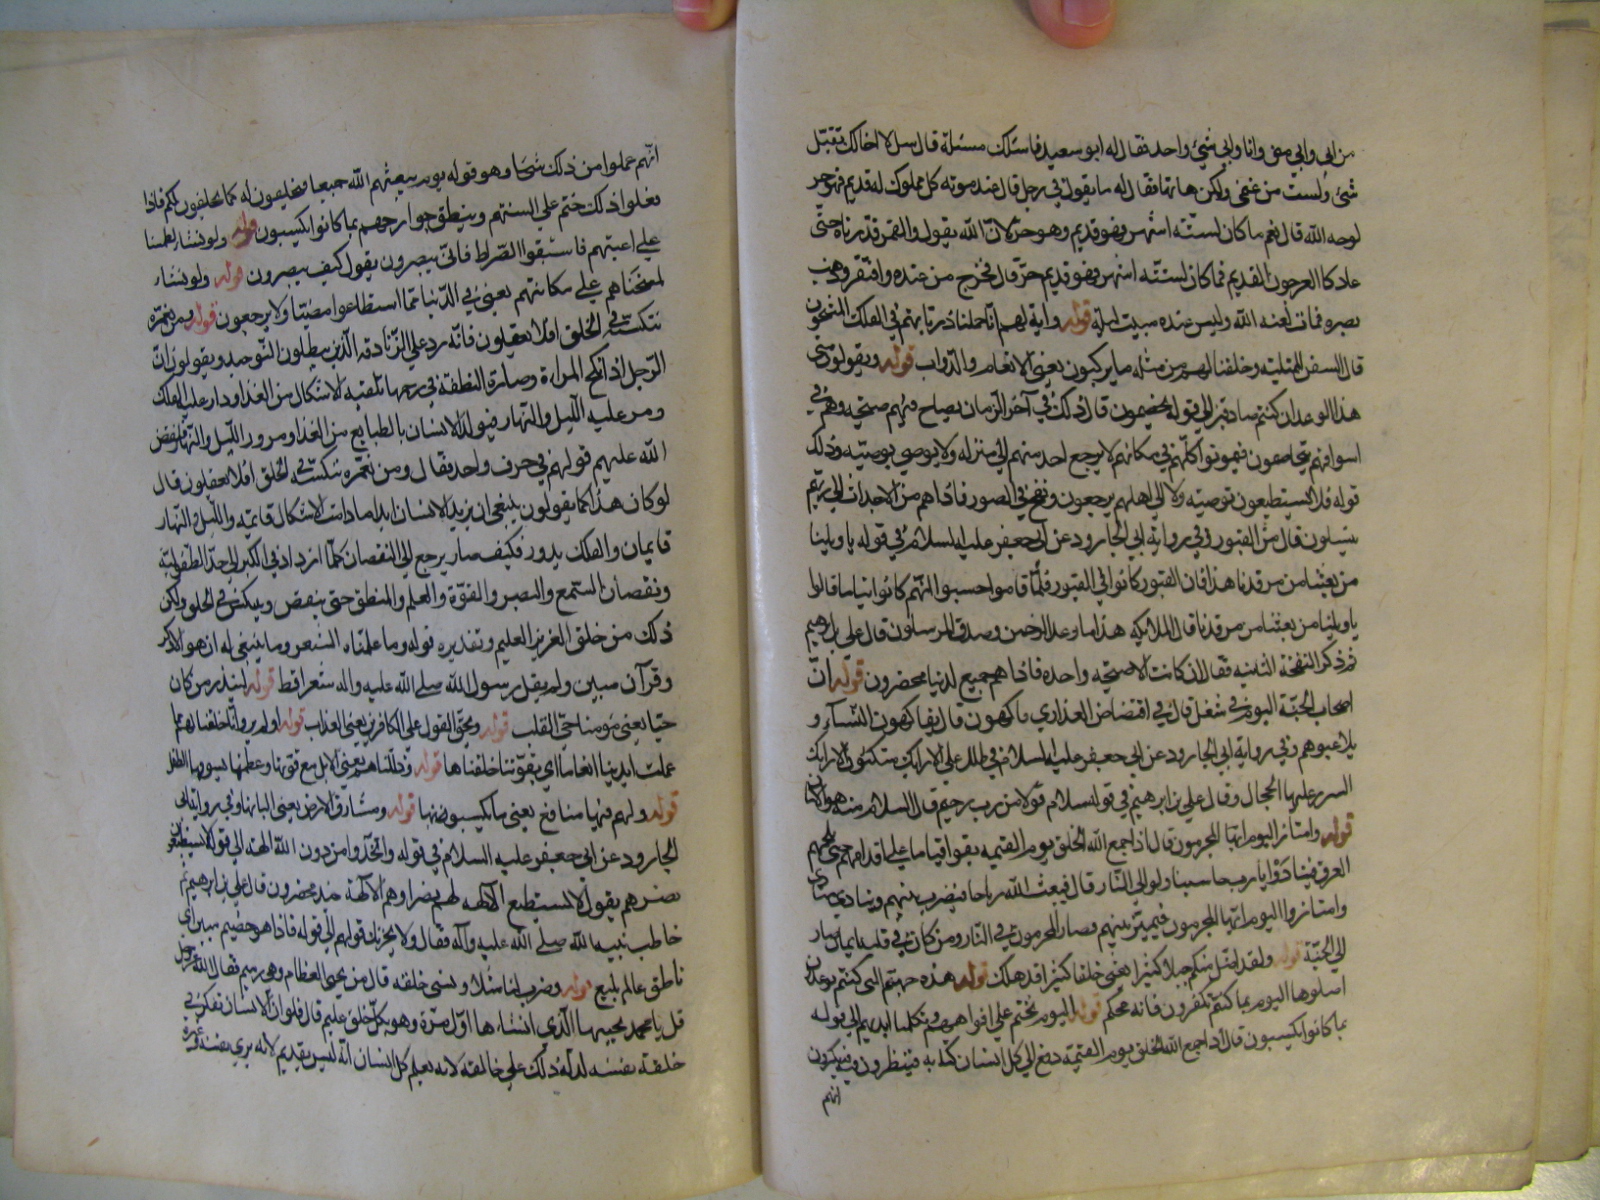 من ابي وابي مني وانا وابي شيء واحد فقال له ابو سعيد فاسئلك مسئلة قال سل لا اخالك تقبل
مني ولست من غنمي ولكن هاتها فقال له ما يقول في رجل قال عند موته كل مملوك له قديم فهو حر
لوجه الله قال نعم ما كان لستة اشهر فهو قديم وهو حر لان الله يقول والقمر قدرناه حتى
عاد كالعرجون القديم فما كان لستة اشهر فهو قديم حر قال فخرج من عنده وافتقر وذهب
بصره فمات لعنه الله وليس عنده مبيت ليلة قوله واية لهم انا حملنا ذريتهم في الفلك المشحون
قال السفن الممتلية وخلقنا لهم من مثله ما يركبون يعني الانعام والدواب قوله ويقولون متى
هذا الوعد ان كنتم صادقين الى قوله يخصمون قال ذلك في آخر الزمان يصاح فيهم صيحة وهم في
اسواقهم يتخاصمون فيموتوا كلهم في مكانهم لا يرجع احد منهم الى منزله ولا يوصي بوصية وذلك
قوله فلا يستطيعون توصية ولا الى اهلهم يرجعون ونفخ في الصور فاذا هم من الاجداث الى ربهم
ينسلون قال من القبور وفي رواية ابي الجارود عن ابي جعفر عليه السلام في قوله يا ويلنا
من بعثنا من مرقدنا هذا فان القبور كانوا في القبور فلما قاموا حسبوا انهم كانوا نياما قالوا
يا ويلنا من بعثنا من مرقدنا قال الملائكة هذا ما وعد الرحمن وصدق المرسلون قال علي بن ابرهيم
ثم ذكر النفخة الثانية فقال ان كانت الا صيحة واحدة فاذا هم جميع لدينا محضرون قوله ان
اصحاب الجنة اليوم في شغل قال في افتضاض العذاري فاكهون قال يفاكهون النساء و
يلاعبوهم وفي رواية ابي الجارود عن ابي جعفر عليه السلام في ظلل على الارائك متكئون الارائك
السرر عليها الحجال وقال علي بن ابرهيم في قوله سلام قولا من رب رحيم قال السلام منه هو الامان
قوله وامتازوا اليوم ايها المجرمون قال اذا جمع الله الخلق يوم القيمة بقوا قياما على اقدامهم حتى يلجمهم
العرق فينادوا يا رب حاسبنا ولو الى النار قال فيبعث الله رياحا فيضرب بينهم وينادي مناد
وامتازوا اليوم ايها المجرمون فيميز بينهم فصار المجرمون في النار ومن كان في قلبه ايمان صار
الى الجنة قوله ولقد اضل منكم جبلا كثيرا يعني خلقا كثيرا قد هلك قوله هذه جهنم التي كنتم توعدون
اصلوها اليوم بما كنتم تكفرون فانه محكم قوله اليوم نختم على افواههم وتكلمنا ايديهم الى قوله
بما كانوا يكسبون قال اذا جمع الله الخلق يوم القيمة دفع الى كل انسان كتابه فينظرون فيه فينكرون
انهم
انهم عملوا من ذلك شيئا وهو قوله يوم يبعثهم الله جميعا فيحلفون له كما يحلفون لكم فاذا
فعلوا ذلك ختم على السنتهم وينطق جوارحهم بما كانوا يكسبون قوله ولو نشاء لطمسنا
على اعينهم فاستبقوا الصراط فانى يبصرون يقول كيف يبصرون قوله ولو نشاء
لمسخناهم على مكانتهم يعني في الدنيا فما استطاعوا مضيا ولا يرجعون قوله ومن نعمره
ننكسه في الخلق افلا يعقلون فانه رد على الزنادقة الذين يبطلون التوحيد ويقولون ان
الرجل اذا نكح المراءة وصارة النطفة في رحمها تلقته الاشكال من الغذا ودار عليه الفلك
ومر عليه الليل والنهار فيتولد الانسان بالطبايع من الغذا ومرور الليل والنهار فنقض
الله عليهم قولهم في حرف واحد فقال ومن نعمره ننكسه في الخلق افلا يعقلون قال
لو كان هذا كما يقولون ينبغي ان يزيد الانسان ابدا ما دامت الاشكال قايمة والليل والنهار
قايمان والفلك يدور فكيف صار يرجع الى النقصان كلما ازداد في الكبر الى حد الطفولية
ونقصان السمع والبصر والقوة والعلم والمنطق حتى ينقص وينكس في الخلق ولكن
ذلك من خلق العزيز العليم وتقديره قوله وما علمناه الشعر وما ينبغي له ان هو الا ذكر
وقرآن مبين ولم يقل رسول الله صلى الله عليه واله شعرا قط قوله لينذر من كان
حيا يعني مومنا حي القلب قوله ويحق القول على الكافرين يعني العذاب قوله اولم يروا انا خلقنا لهم مما
عملت ايدينا انعاما اي بقوتنا خلقناها قوله وذللناها لهم يعني الابل مع قوتها وعظمها يسوقها الطفل
قوله ولهم فيها منافع يعني ما يكسبون بها قوله ومشارق الارض يعني البانها وفي رواية ابي
الجارود عن ابي جعفر عليه السلام في قوله واتخذوا من دون الله الهة الى قوله لا يستطيعون
نصرهم يقول لا تستطيع الالهة لهم نصرا وهم للالهة جند محضرون قال علي بن ابرهيم ثم
خاطب نبيه الله صلى الله عليه وآله فقال ولا يحزنك قولهم الى قوله فاذا هو خصيم مبين اي
ناطق عالم بليغ قوله وضرب لنا مثلا ونسي خلقه قال من يحيي العظام وهي رميم فقال الله عز وجل
قل يا محمد يحييها الذي انشاها اول مرة وهو بكل خلق عليم قال فلو ان الانسان تفكر في
خلقة نفسه لدله ذلك على خالقه لانه يعلم كل انسان انه ليس بقديم لانه يرى نفسه وغيره